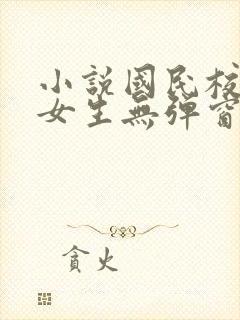 小説國民校
女生無彈窗
貪火